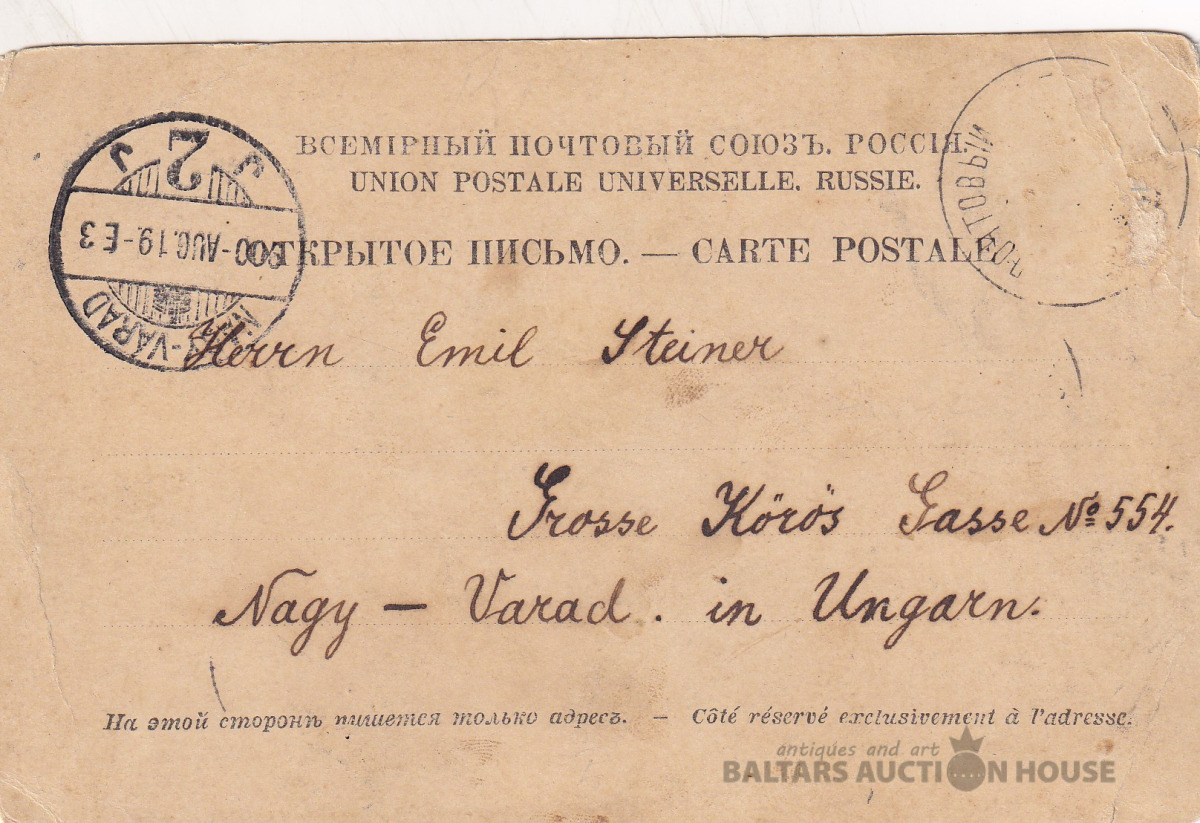 ВСЕМІРНЫЙ ПОЧТОВЫЙ СОЮЗЪ. РОССІЯ.
UNION POSTALE UNIVERSELLE. RUSSIE.
ОТКРЫТОЕ ПИСЬМО. — CARTE POSTALE
2
-AUG.19.-E3
-VÁRAD
ПОЧТОВЫЙ
Herrn Emil Steiner
Grosse Körös Gasse № 554.
Nagy – Varad. in Ungarn.
На этой сторонѣ пишется только адресъ. — Côté réservé exclusivement à l'adresse.
antiques and art
BALTARS AUCTION HOUSE